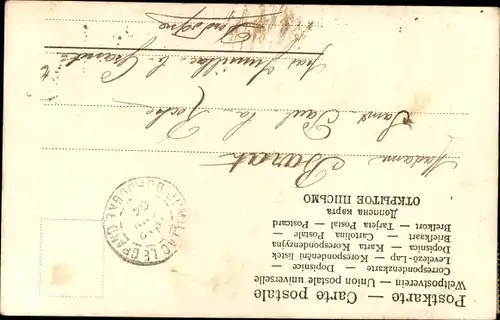 Postkarte — Carte postale
Weltpostverein — Union postale universelle
Correspondenzkarte — Dopisnice —
Levelező-Lap — Korespondenční lístek
Dopisnica — Karta Korespondencyjna
Briefkaart — Cartolina Postale —
Brefkort — Tarjeta Postal — Postcard
Дописна карта
ОТКРЫТОЕ ПИСЬМО
Madame Barat
Saint Paul la Roche
par Jumilhac-le-Grand
Dordogne
JUMILHAC-LE-GRAND
DORDOGNE
04